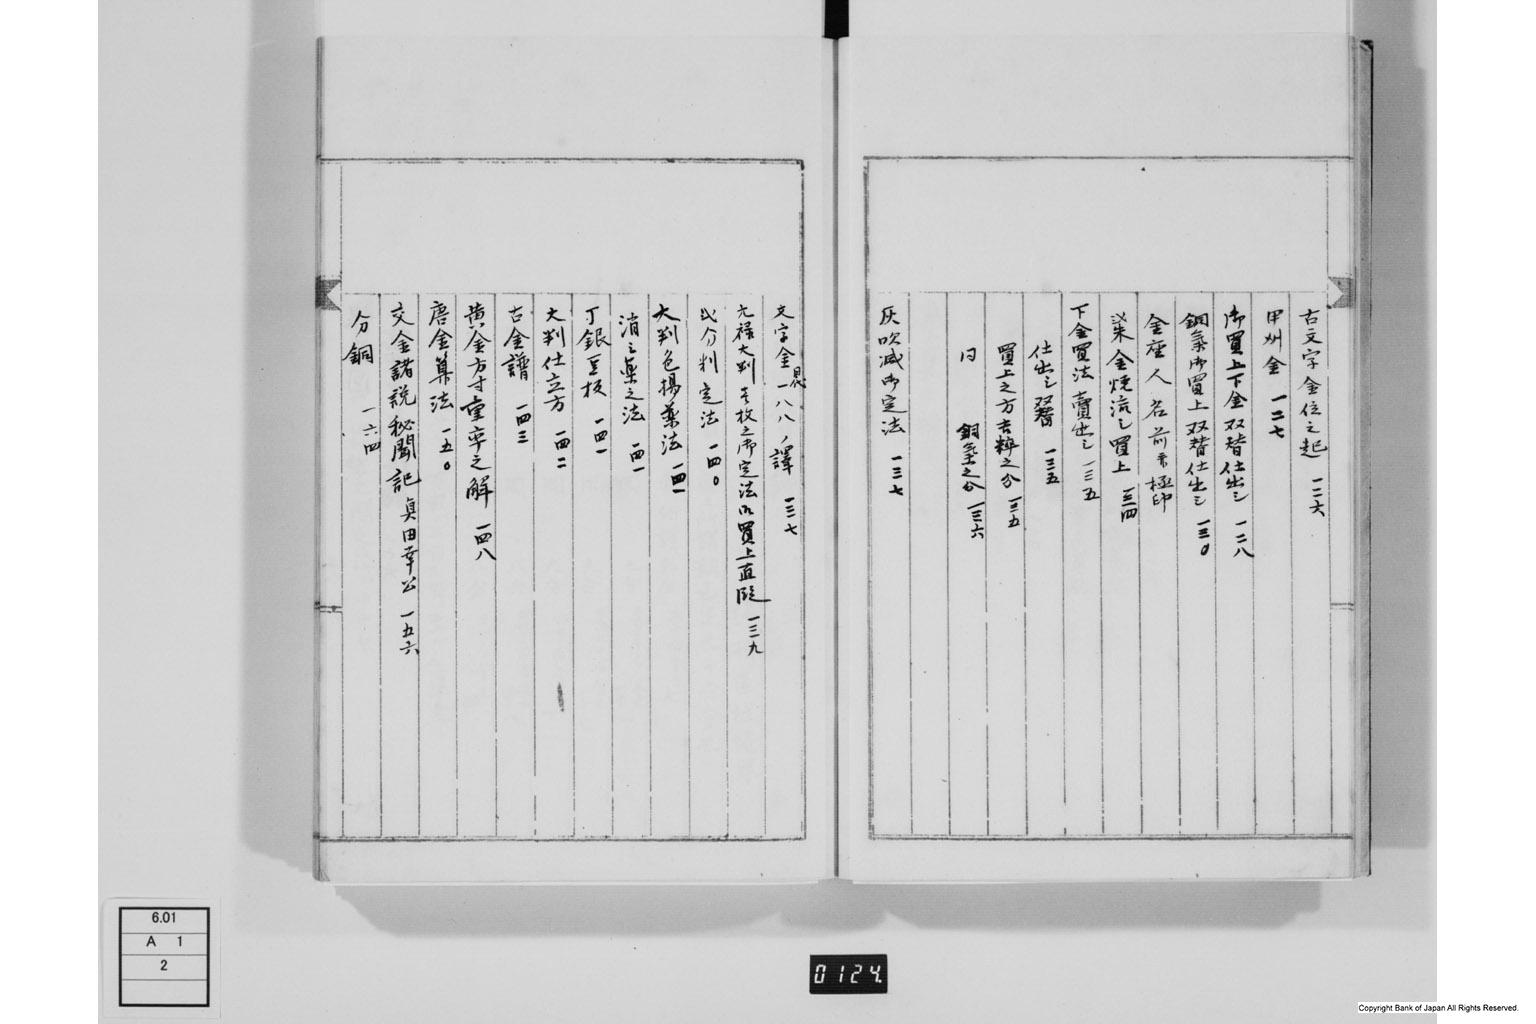 古文字金位之起 一二六
甲州金 一二七
御買上下金双替仕出シ 一二八
銅気御買上双替仕出シ 一三〇
金座人名前并極印
弐朱金焼流シ買上 一三四
下金買法賣出シ 一三五
仕出シ双替 一三五
買上之方吉粋之分 一三五
同 銅気之分 一三六
灰吹減御定法 一三七
文字金 一八八ノ譯 一三七
元禄大判壱枚之御定法御買上直段 一三九
弐分判定法 一四〇
大判色揚薬法 一四一
消シ薬之法 一四一
丁銀豆板 一四一
大判仕立方 一四二
古金譜 一四三
黄金方寸重率之解 一四八
唐金算法 一五〇
交金諸説秘聞記 真田幸公 一五六
分銅 一六四
6.01
A 1
2
0124.
Copyright Bank of Japan All Rights Reserved.